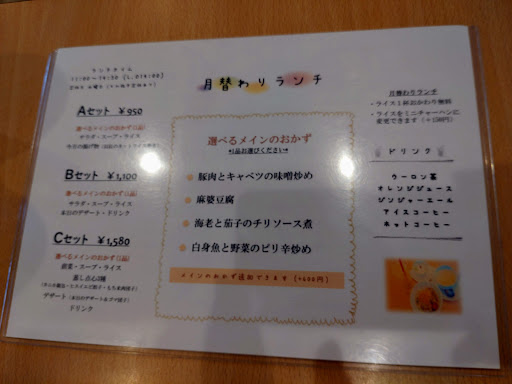 ランチタイム
月替わりランチ
Aセット ¥950
選べるメインのおかず(1品)
サラダ・スープ・ライス
Bセット ¥1,100
選べるメインのおかず(1品)
サラダ・スープ・ライス
本日のデザート・ドリンク
Cセット ¥1,580
選べるメインのおかず(1品)
前菜・スープ・ライス
蒸し点心3種
ドリンク
選べるメインのおかず
●豚肉とキャベツの味噌炒め
●麻婆豆腐
●海老と茄子のチリソース煮
●白身魚と野菜のピリ辛炒め
メインのおかず追加できます(+400円)
月替わりランチ
・ライス1杯おかわり無料
・ライスをミニチャーハンに
変更できます(+150円)
ドリンク
ウーロン茶
オレンジジュース
ジンジャーエール
アイスコーヒー
ホットコーヒー